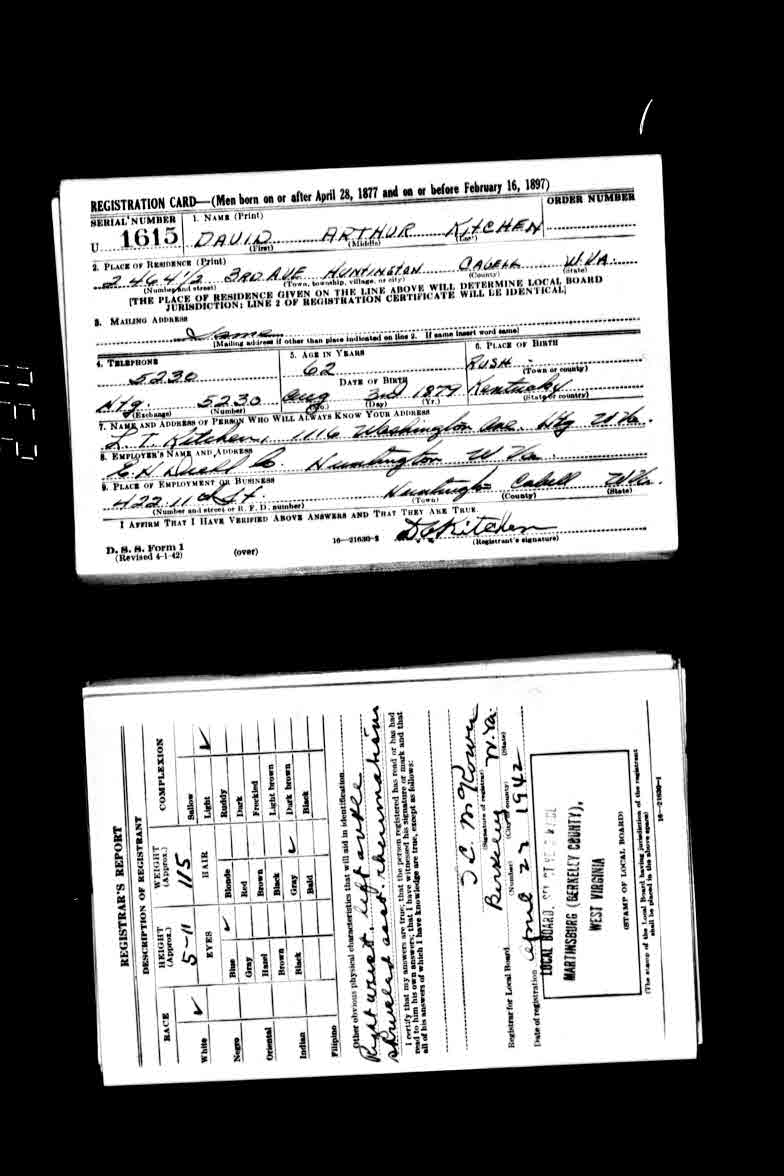 REGISTRATION CARD—(Men born on or after April 28, 1877 and on or before February 16, 1897)
SERIAL NUMBER 1. NAME (Print) ORDER NUMBER
U 1615 DAVID ARTHUR KITCHEN
(First) (Middle) (Last)
2. PLACE OF RESIDENCE (Print)
2464 1/2 3RD AVE HUNTINGTON CABELL W.VA.
(Number and street) (Town, township, village, or city) (County) (State)
[THE PLACE OF RESIDENCE GIVEN ON THE LINE ABOVE WILL DETERMINE LOCAL BOARD
JURISDICTION; LINE 2 OF REGISTRATION CERTIFICATE WILL BE IDENTICAL]
3. MAILING ADDRESS
Same
[Mailing address if other than place indicated on line 2. If same insert word same]
4. TELEPHONE 5. AGE IN YEARS 6. PLACE OF BIRTH
5230 62 RUSH
DATE OF BIRTH (Town or county)
Htg. 5230 Aug 3rd 1879 Kentucky
(Exchange) (Number) (Mo.) (Day) (Yr.) (State or country)
7. NAME AND ADDRESS OF PERSON WHO WILL ALWAYS KNOW YOUR ADDRESS
L. T. Kitchen, 1116 Washington Ave. Htg W Va.
8. EMPLOYER'S NAME AND ADDRESS
E. H. Co. Huntington W Va.
9. PLACE OF EMPLOYMENT OR BUSINESS
422 11 St. Huntington Cabell W Va.
(Number and street or R. F. D. number) (Town) (County) (State)
I AFFIRM THAT I HAVE VERIFIED ABOVE ANSWERS AND THAT THEY ARE TRUE.
Kitchen
D. S. S. Form 1 16—21630-2 (Registrant's signature)
(Revised 4-1-42) (over)
REGISTRAR'S REPORT
DESCRIPTION OF REGISTRANT
RACE HEIGHT (Approx.) WEIGHT (Approx.) COMPLEXION
5-11 115 Sallow
White ✓ EYES HAIR Light ✓
Blue ✓ Blonde Ruddy
Negro Gray Red Dark
Hazel Brown Freckled
Oriental Brown Black Light brown
Black Gray ✓ Dark brown
Indian Bald Black
Filipino
Other obvious physical characteristics that will aid in identification
Right wrist, left ankle
rheumatism
I certify that my answers are true; that the person registered has read or has had
read to him his own answers; that I have witnessed his signature or mark and that
all of his answers of which I have knowledge are true, except as follows:
J C McKown
(Signature of registrar)
Registrar for Local Board Berkeley W. Va.
(Number) (City or county) (State)
Date of registration April 27 1942
LOCAL BOARD,
MARTINSBURG (BERKELEY COUNTY),
WEST VIRGINIA
(STAMP OF LOCAL BOARD)
(The stamp of the Local Board having jurisdiction of the registrant
shall be placed in the above space)
16—21630-1